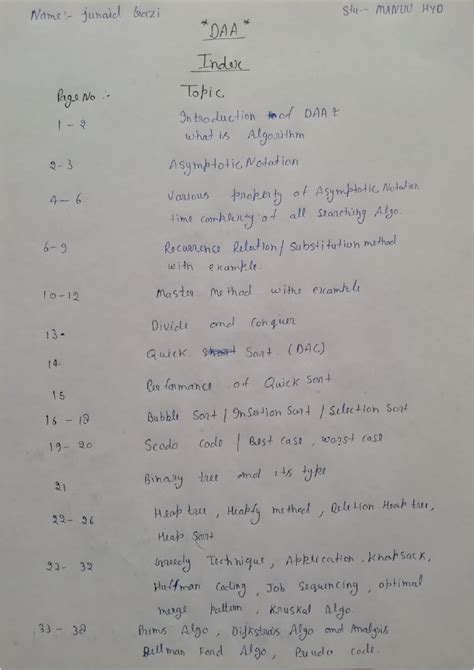 Name:- junaid Gazi
Stu:- MANUU HYD
*DAA*
Index
Page No :-   Topic
1 - 2   Introduction of DAA &
what is Algorithm
2-3   Asymptotic Notation
4 - 6   Various property of Asymptotic Notation
time complexity of all searching Algo.
6-9   Recurrence Relation / Substitution method
with example.
10-12   Master Method withe example
13-   Divide and Conquer
14   Quick Sort. (DAC)
15   Performance of Quick Sort
16 - 18   Bubble Sort / Insertion Sort / Selection Sort
19- 20   Scado Code / Best case , worst case
21   Binary tree and its type
22- 26   Heap tree , Heapfy method , Deletion Heap tree,
Heap Sort
27- 32   Greedy Technique, Application , Knapsack,
Huffman Coding , Job Sequencing , optimal
merge Pattern , Kruskal Algo.
33 - 38   Prims Algo , Dijkstra's Algo and Analysis
Bellman Ford Algo , Pseudo code.